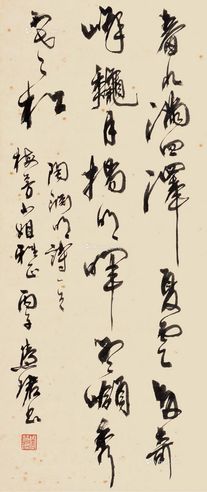 春水满四泽夏云多奇
峰秋月扬明晖冬岭秀
寒松
陶渊明诗一首
梅芳小姐雅正 丙子